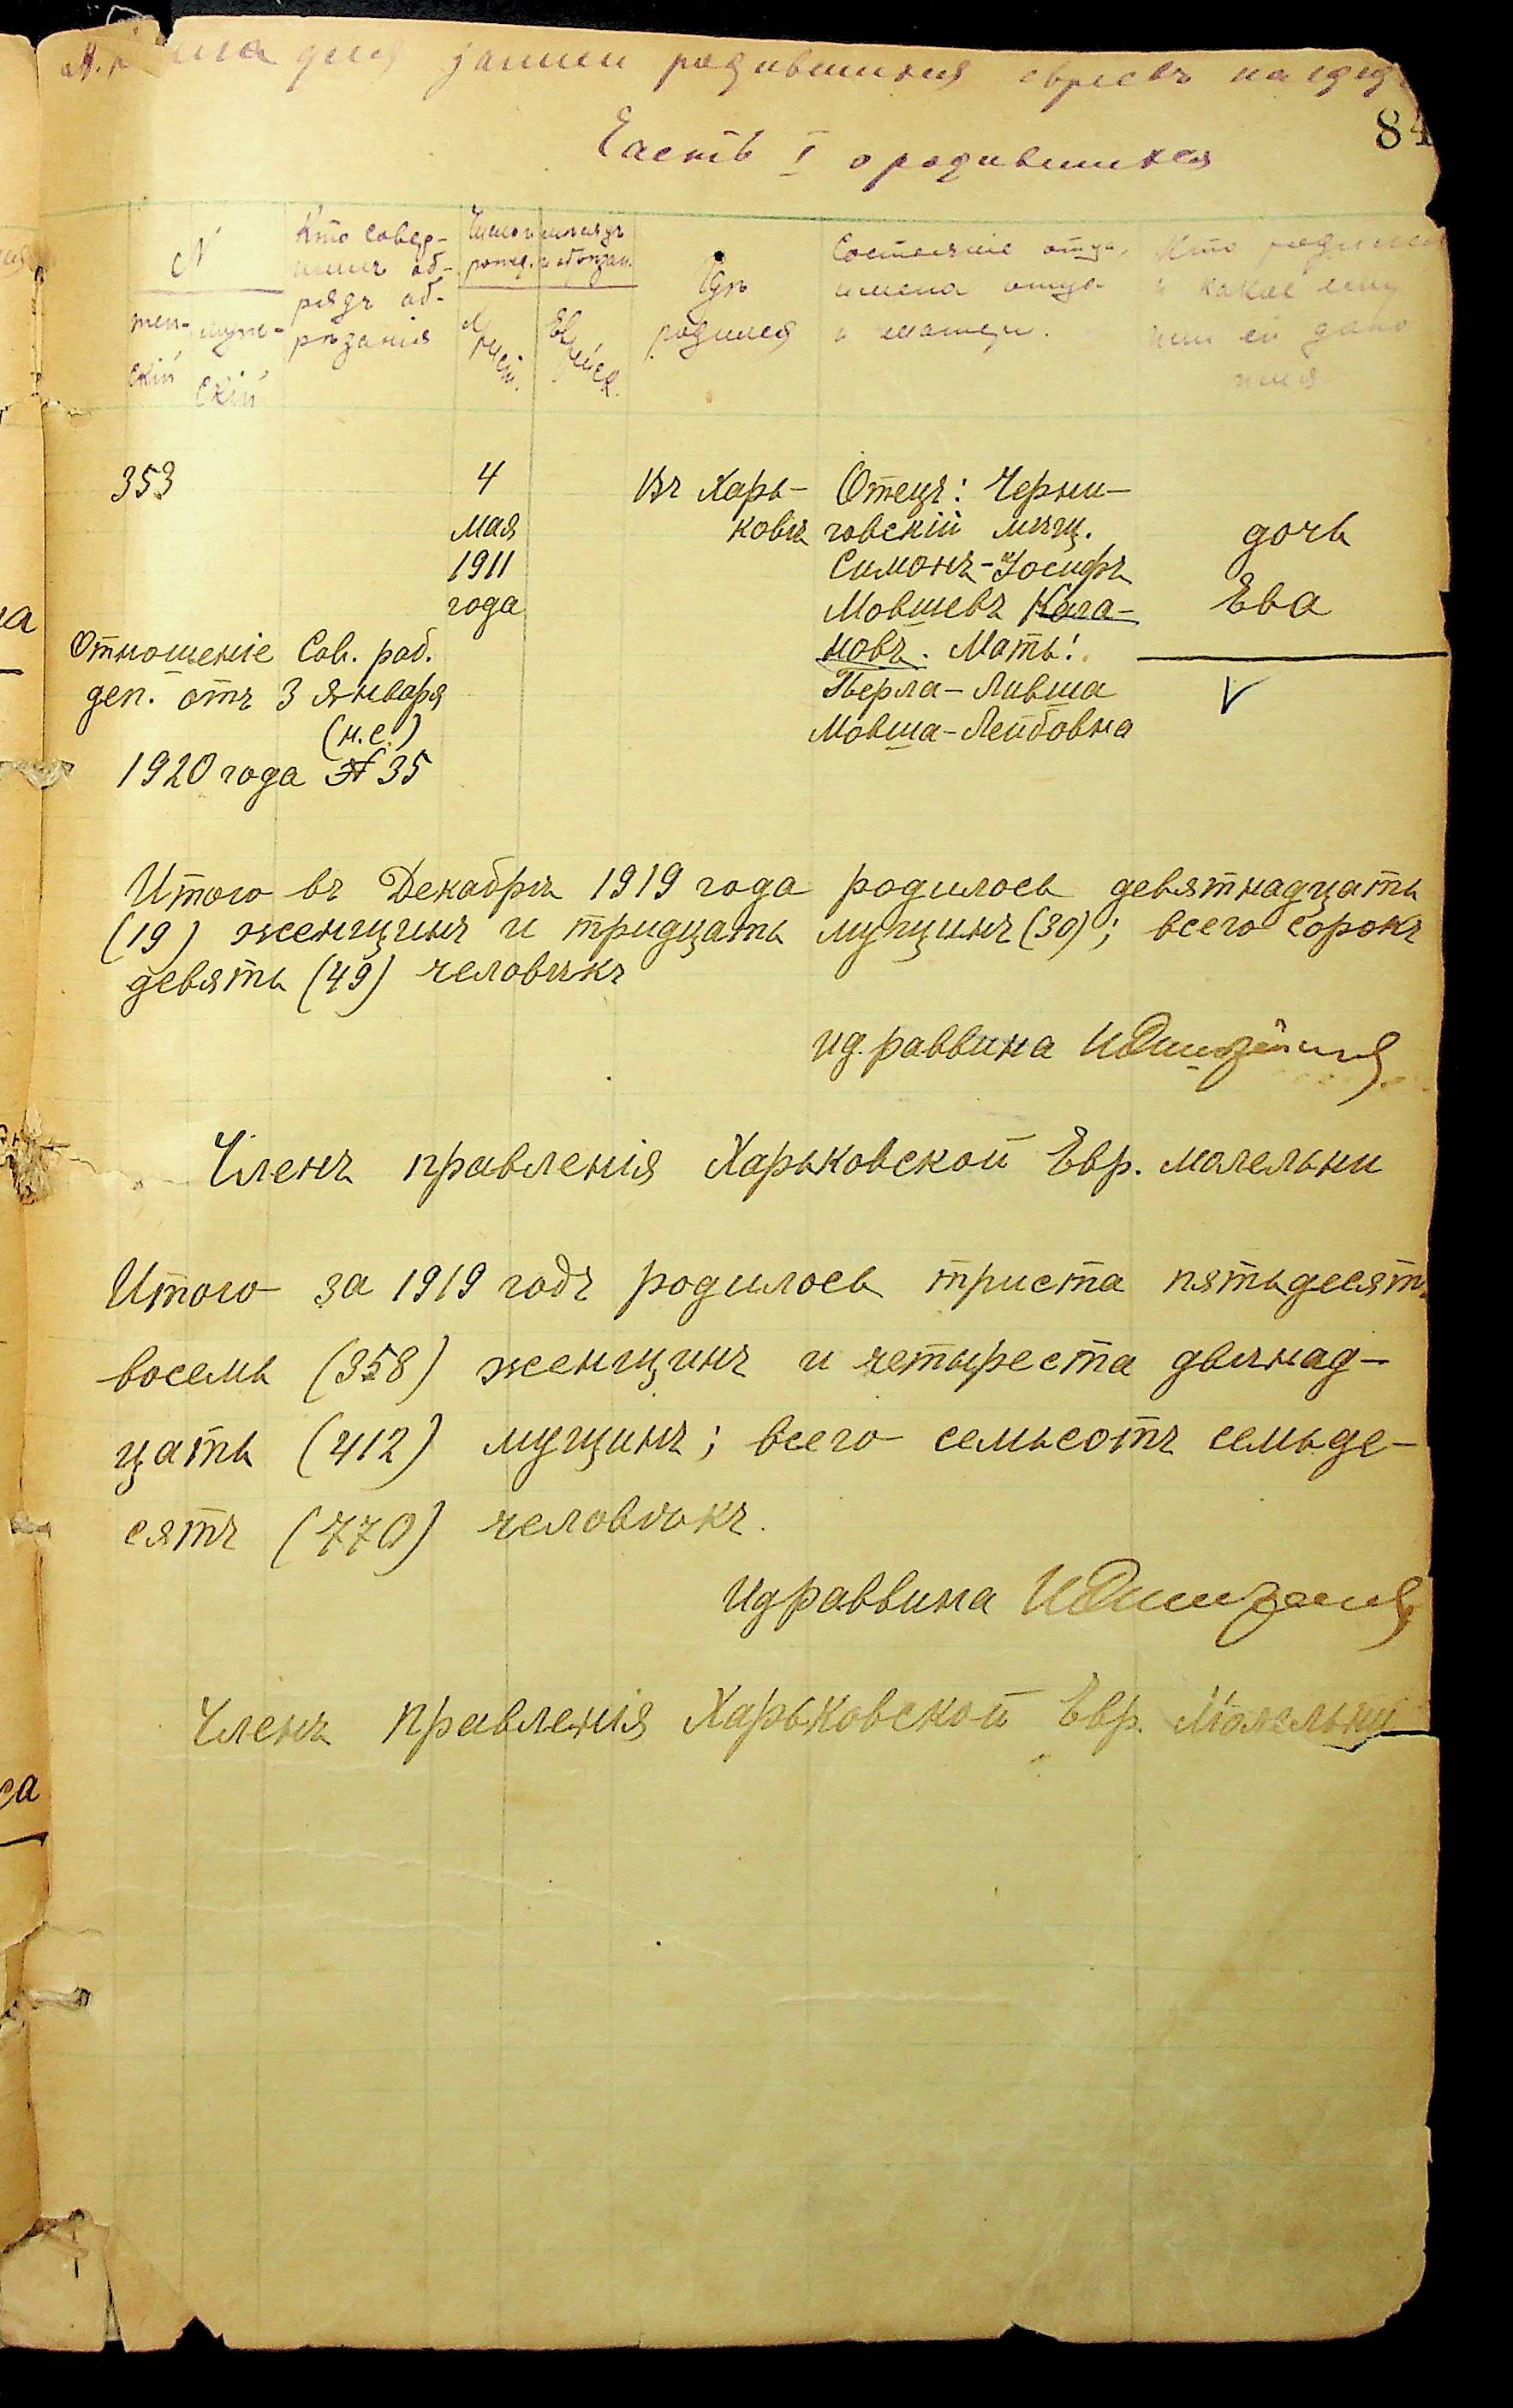 для записи родившихся евреевъ на
84
Часть I о родившихся
№
жен-
скій
муж-
скій
Кто совер-
шилъ об-
рядъ об-
рѣзанія
Число и мѣсяцъ
рожд. и обрѣзан.
Христ.
Еврейск.
Гдѣ
родился
Состояніе отца,
имена отца
и матери.
Кто родился
и какое ему
или ей дано
имя
353
4
мая
1911
года
Въ Харь-
ковѣ
Отецъ: Черни-
говскій мѣщ.
Симонъ-Іосифъ
Мовшевъ Кага-
новъ. Мать:
Перла-Ливша
Мовша-Лейбовна
дочь
Ева
Отношеніе Сов. раб.
деп. отъ 3 Января
(н.с.)
1920 года № 35
Итого въ Декабрѣ 1919 года родилось девятнадцать
(19) женщинъ и тридцать мущинъ (30); всего сорокъ
девять (49) человѣкъ
ид. раввина
Членъ правленія Харьковской Евр. молельни
Итого за 1919 годъ родилось триста пятьдесятъ
восемь (358) женщинъ и четыреста двѣнад-
цать (412) мущинъ; всего семьсотъ семьде-
сятъ (770) человѣкъ.
ид раввина
Членъ правленія Харьковской Евр. Молельни